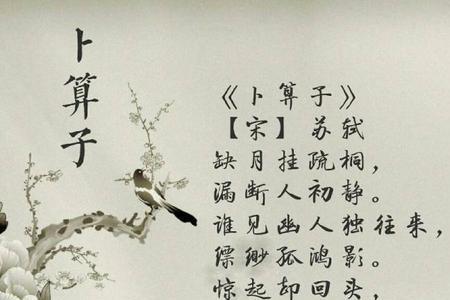 卜算子
《卜算子》
【宋】苏轼
缺月挂疏桐，
漏断人初静。
谁见幽人独往来，
缥缈孤鸿影。
惊起却回头，